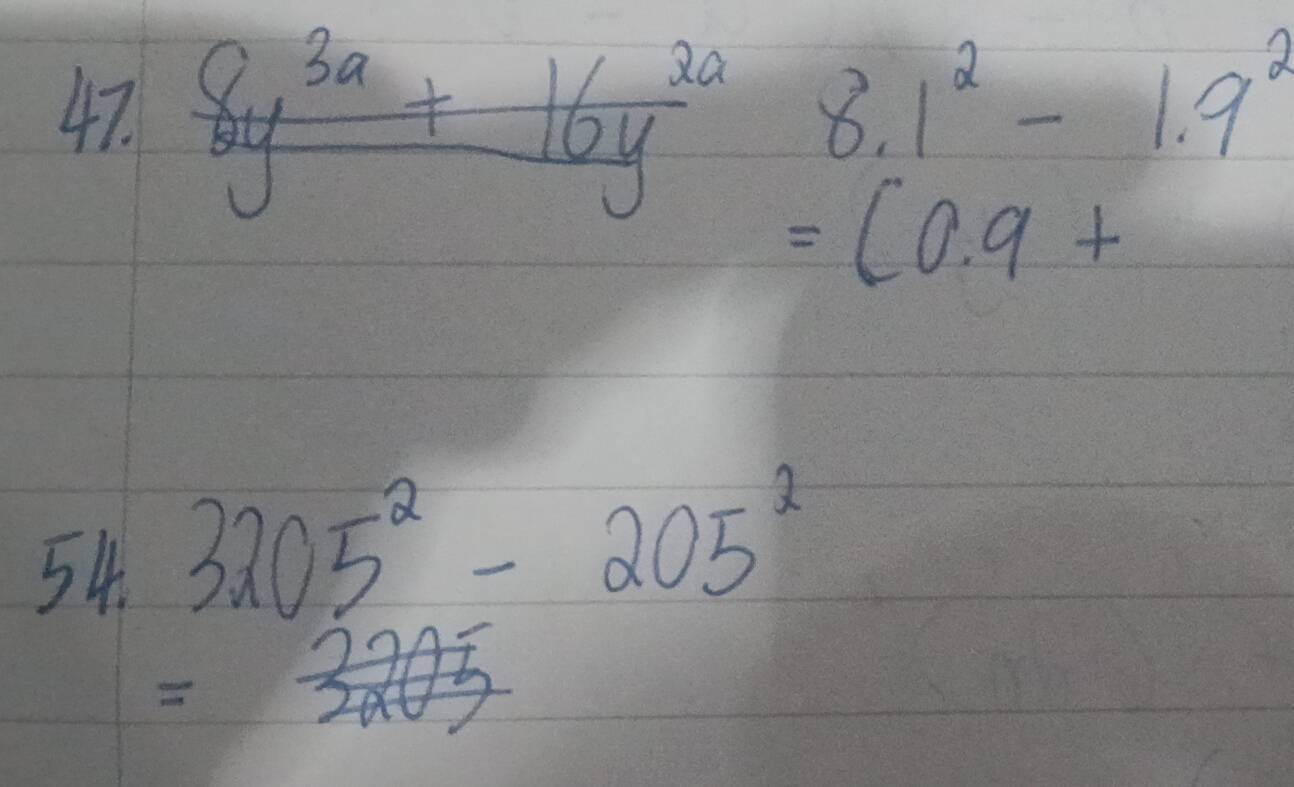 47. 8y^3a + 16y^2a 8.1² - 1.9²
= (0.9 +
54. 3205² - 205²
= 3205